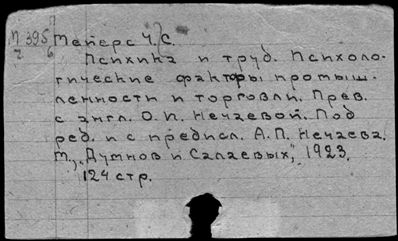 П 395 Мейерс Ч. С.
7 6
Психика и труд. Психоло-
гические факторы промыш-
ленности и торговли. Прев.
с англ. О. П. Нечаевой. Под
ред. и с предисл. А. П. Нечаева.
М., "Думнов и Салаевых", 1923,
124 стр.